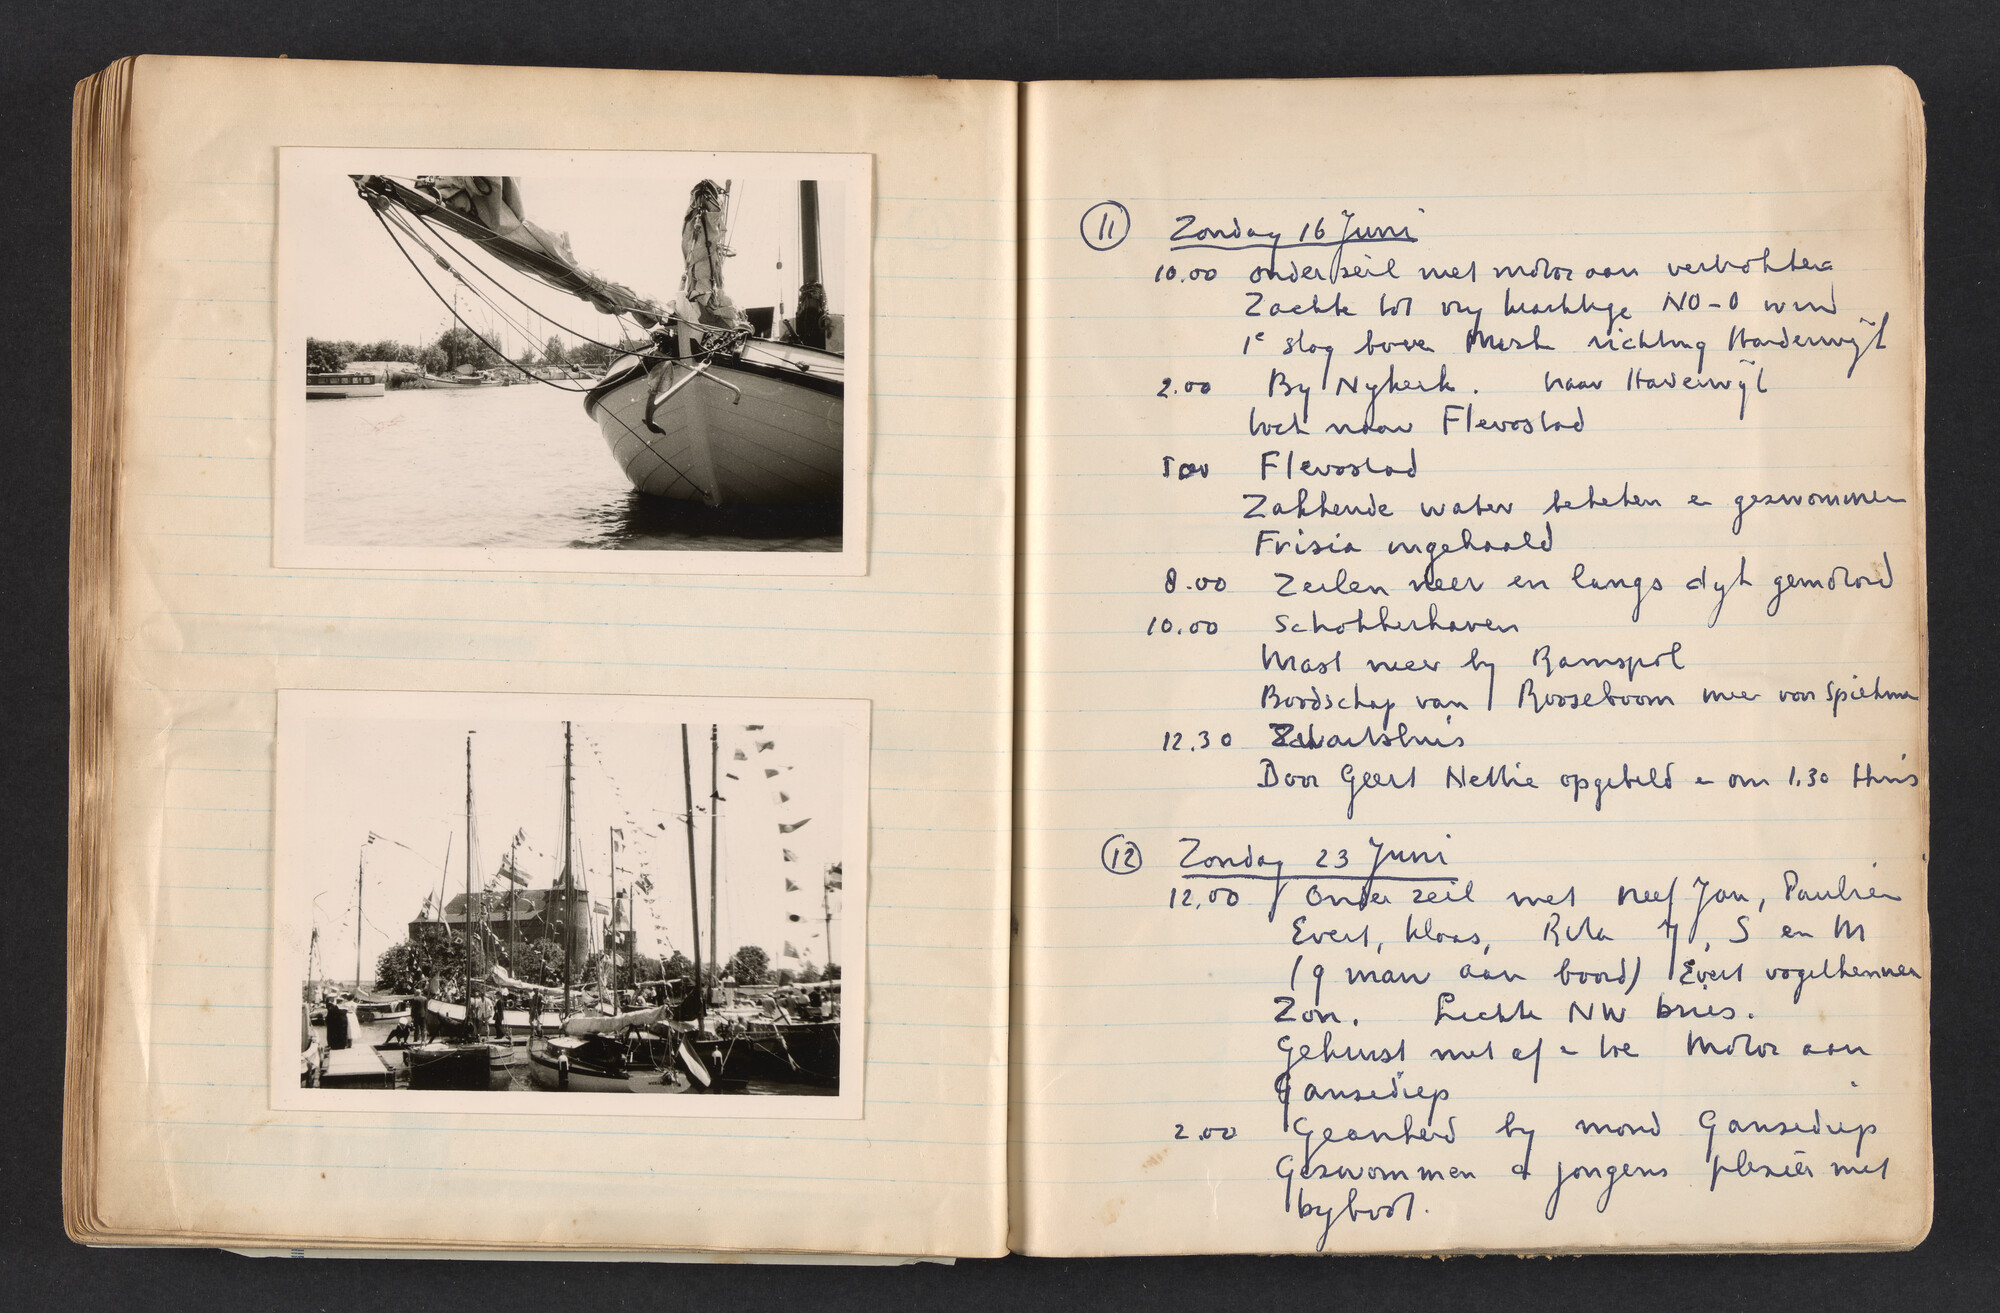 11 Zondag 16 Juni
10.00 onder zeil met motor aan vertrokken
Zachte tot vry krachtige NO-O wind
1e slag boven richting Harderwijk
2.00 By Nykerk. naar Harderwijk
toch naar Flevostad
5.00 Flevostad
Zakkende water bekeken en gezwommen
Frisia ingehaald
8.00 Zeilen neer en langs dyk gemotord
10.00 Schokkerhaven
Mast neer by Ramspol
Boodschap van Rooseboom mee voor
12.30 Zwartsluis
Door Geert Nettie opgebeld en om 1.30 Huis
12 Zondag 23 Juni
12.00 Onder zeil met neef Jan, Paulien
Evert, Klaas, Rita, S en M
(9 man aan boord) Evert vogelkenner
Zon. Lichte NW bries.
Gekruist met af en toe Motor aan
Gansediep
2.00 Geankerd by mond Gansediep
Gezwommen en jongens plezier met
byboot.